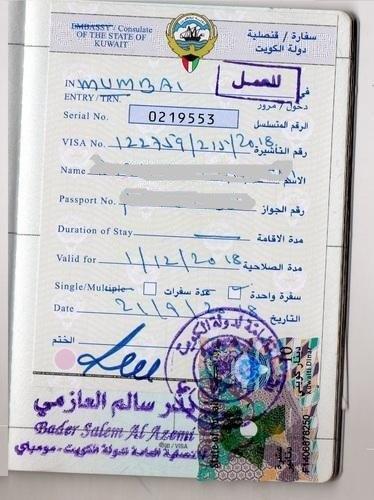 EMBASSY / Consulate سفارة / قنصلية
OF THE STATE OF KUWAIT دولة الكويت
للعمل
IN MUMBAI في
ENTRY / TRN. دخول / مرور
Serial No. 0219553 الرقم المتسلسل
VISA No. 122759/215/2018 رقم التأشيرة
Name الاسم
Passport No. رقم الجواز
Duration of Stay مدة الاقامة
Valid for 1/12/2018 مدة الصلاحية
Single/Multiple عدة سفرات سفرة واحدة
Date 21/9/2018 التاريخ
الختم
بدر سالم العازمي
Bader Salem Al Azemi
القنصلية العامة لدولة الكويت - مومباي
/ VISA
10
دينار كويتي
Kuwaiti Dinar